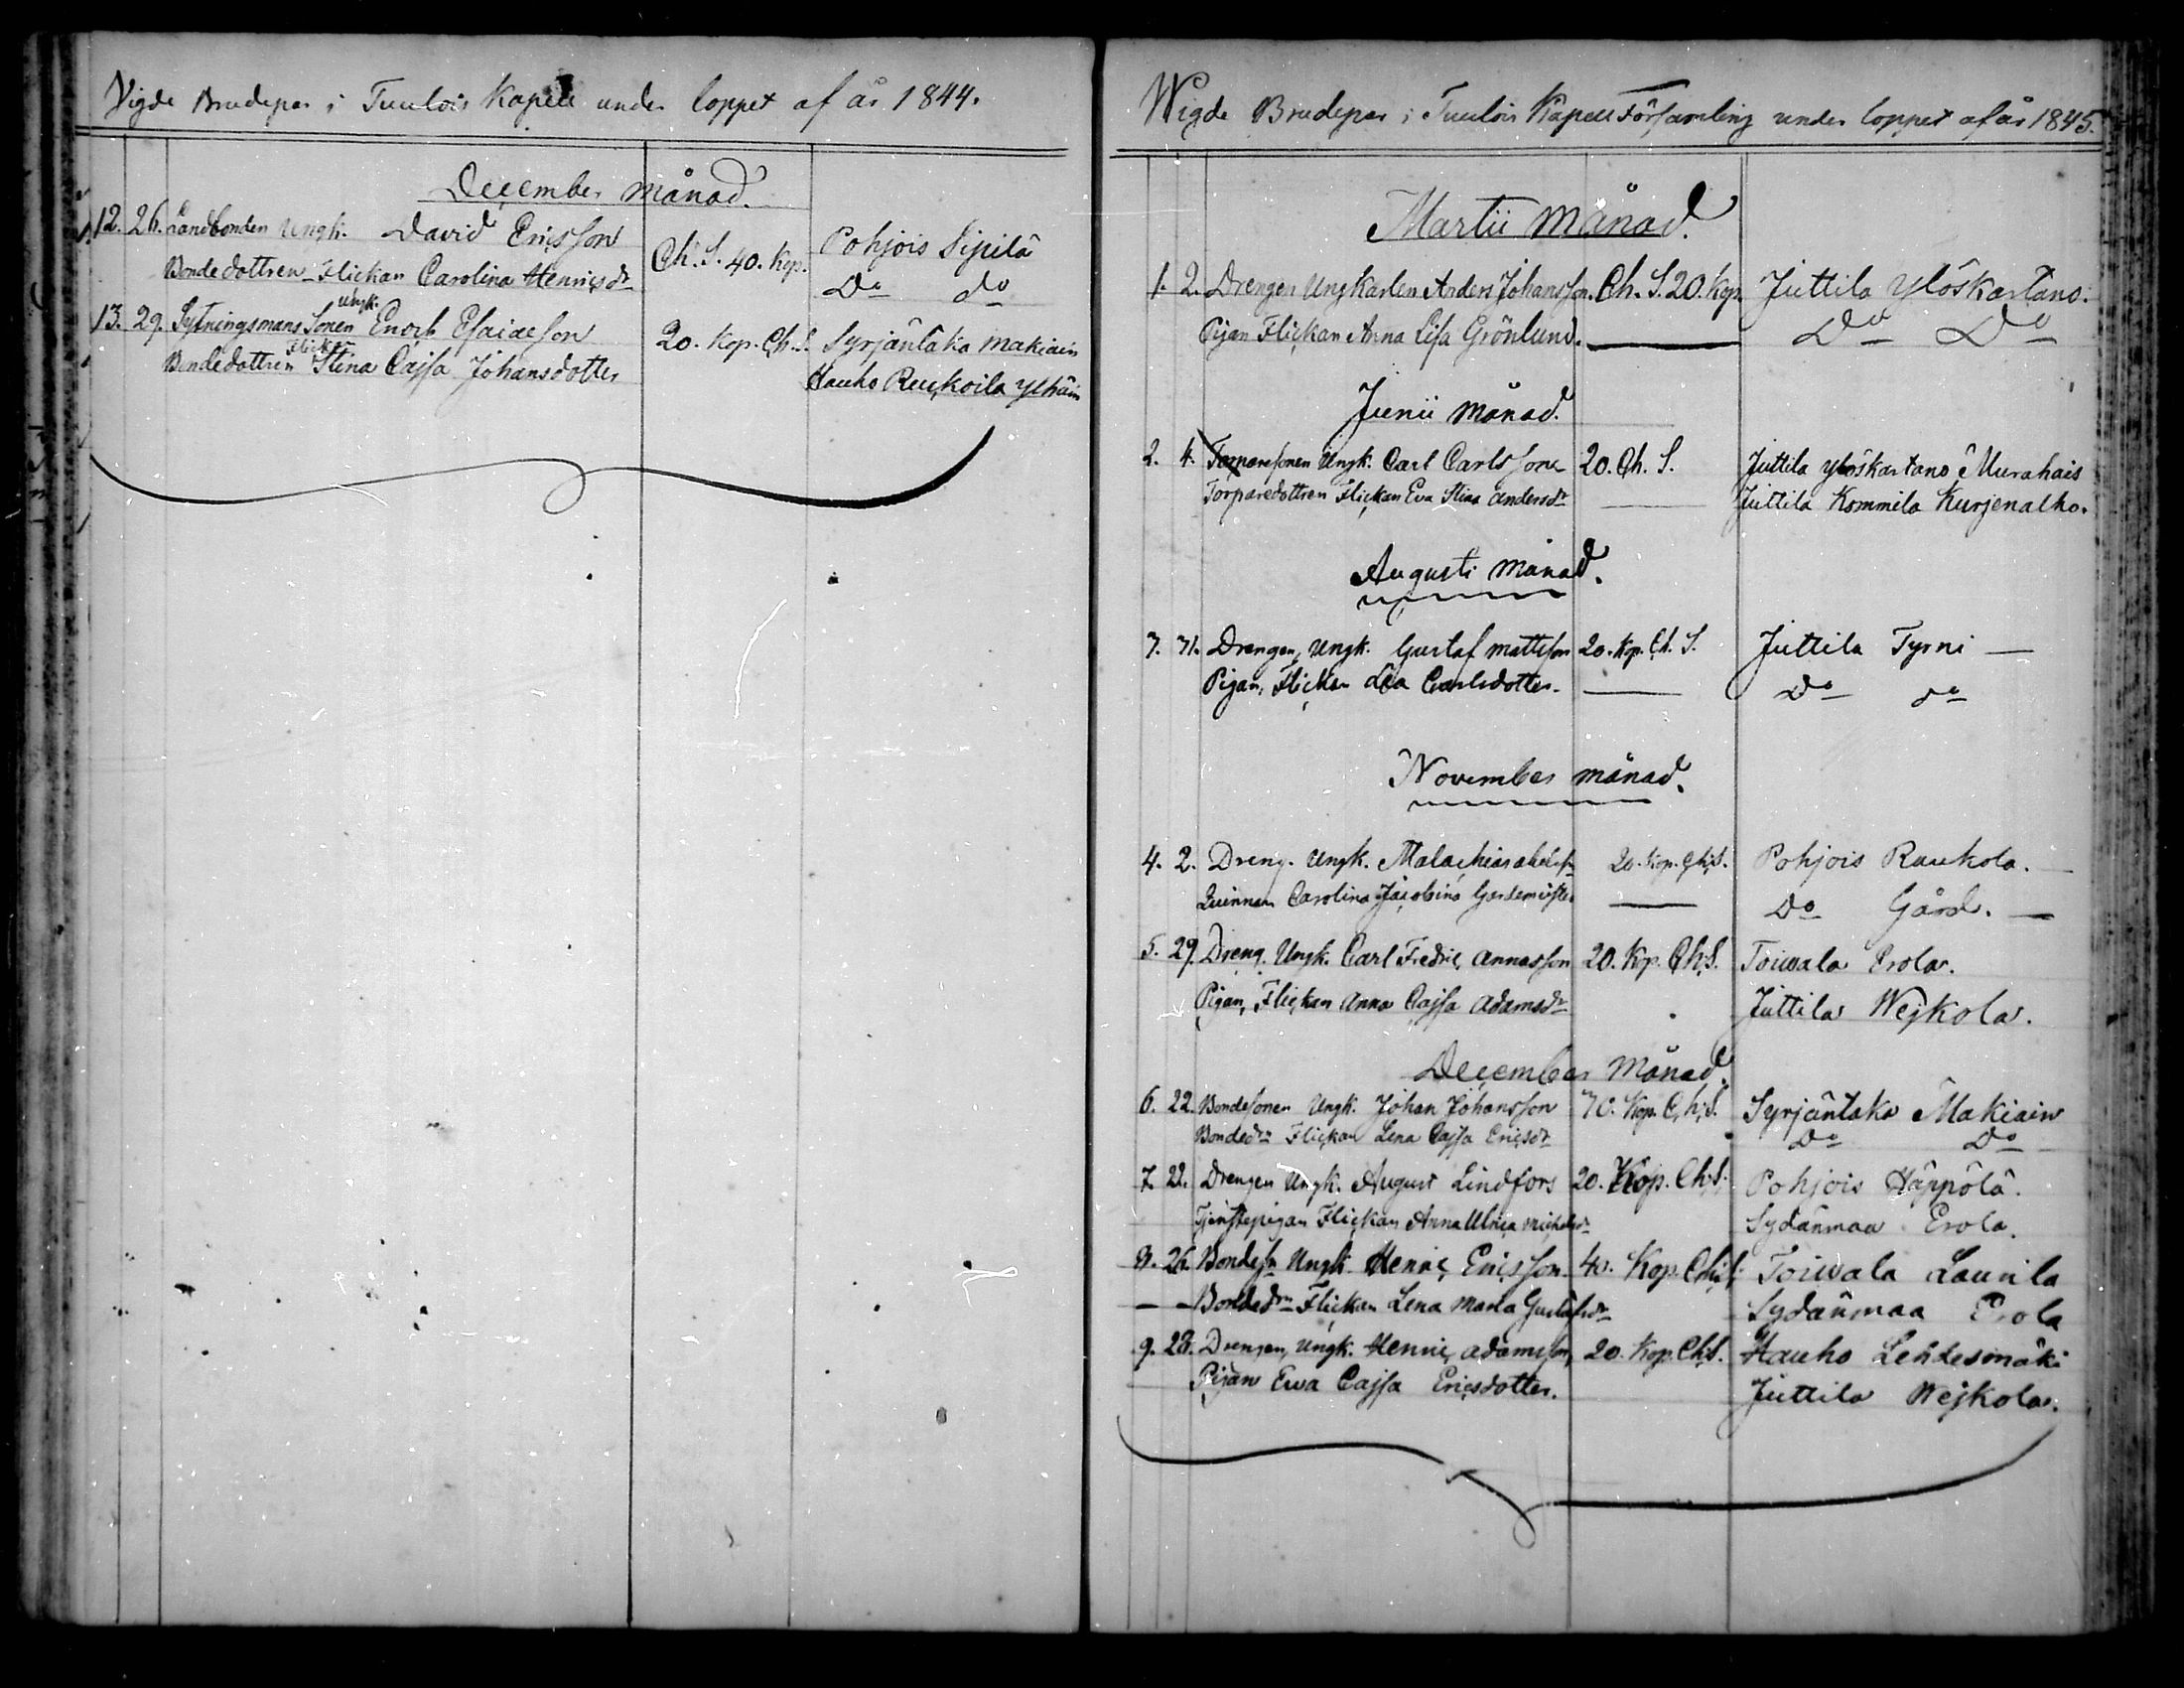 Vigde Brudepar i Tuulois Kapell under loppet af år 1844.
December månad.
12. 26. Landbonden Ungk. David Ericsson Ch. S. 40. Kop. Pohjois Sipilä
Bondedottren Flickan Carolina Henricsdr Do do
Ungk.
13. 29. Sytningsmans Sonen Enoch Esaiaeson 20. Kop. Ch. S. Syrjäntaka Makiain
Flickan
Bondedottren Stina Cajsa Johansdotter Hauho Ruckoila Ylhäin
Wigde Brudepar i Tuulois Kapell Församling under loppet af år 1845.
Martii Månad.
1. 2. Drengen Ungkarlen Anders Johansson. Ch. S. 20. Kop. Juttila Ylöskartano.
Pigan Flickan Anna Lisa Grönlund. Do Do
Junii Månad.
2. 4. Torparesonen Ungk. Carl Carlsson 20. Ch. S. Juttila Ylöskartano Murahais
Torparedottren Flickan Eva Stina Andersdr Juttila Kommila Kurjenalho.
Augusti månad.
3. 31. Drengen, Ungk. Gustaf Mattsson 20. Kop. Ch. S. Juttila Tyrni
Pigan, Flickan Lea Carlsdotter. Do do
November månad.
4. 2. Dreng. Ungk. Malachias 20. Kop. Ch. S. Pohjois Raukola.
Quinnan Carolina Jacobina Do Gård.
5. 29. Dreng. Ungk. Carl Fredric Annasson 20. Kop. Ch. S. Toivala Erola.
Pigan, Flickan Anna Cajsa Adamsdr Juttila Wejkola.
December Månad.
6. 22. Bondesonen Ungk. Johan Johansson 70. Kop. Ch. S. Syrjäntaka Makiain
Bondedrn Flickan Lena Cajsa Ericsdr Do Do
7. 22. Drengen Ungk. August Lindfors 20. Kop. Ch. S. Pohjois Häppölä.
Tjenstepigan Flickan Anna Ulrica Michelsdr Sydänmaa Erola.
8. 26. Bondesn Ungk. Henric Ericsson. 40. Kop. Ch. S. Toivala Laurila
Bondedrn Flickan Lena Maria Gustafsdr Sydänmaa Erola
9. 28. Drengen, Ungk. Henric Adamsson, 20. Kop. Ch. S. Hauho Lehtesmäki
Pigan Ewa Cajsa Ericsdotter. Juttila Wejkola.